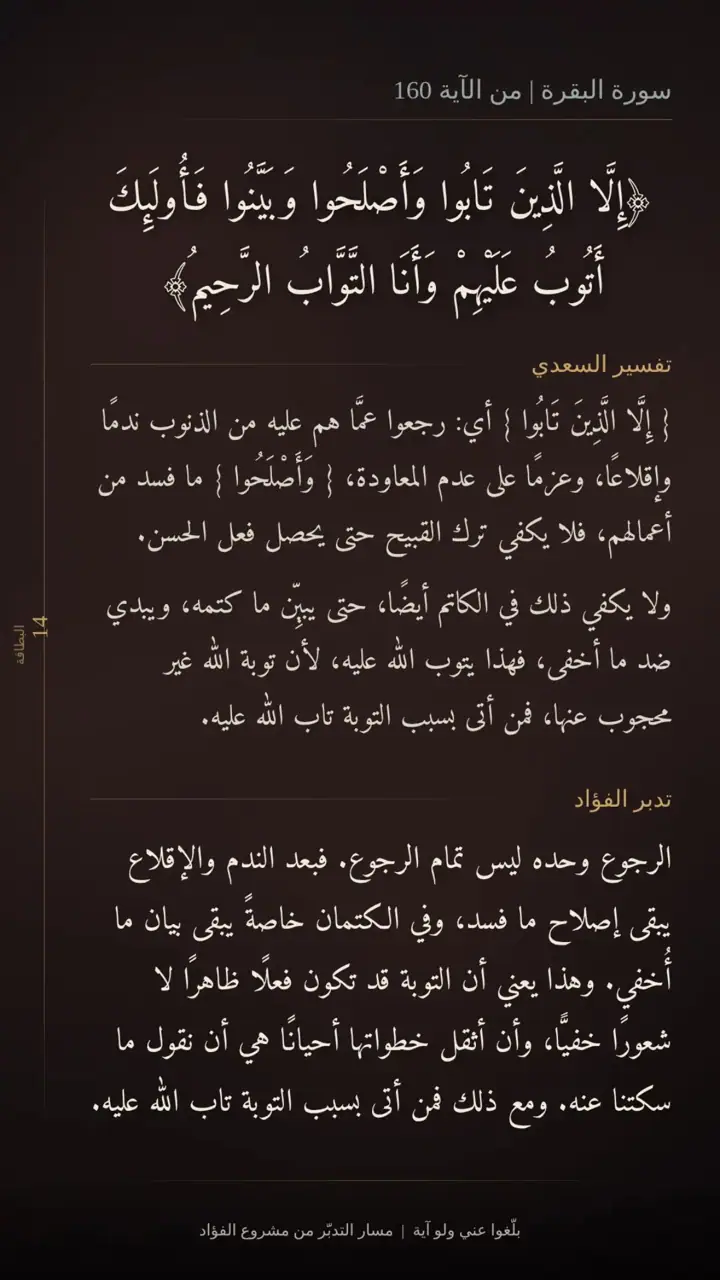 سورة البقرة | من الآية 160
﴿إِلَّا الَّذِينَ تَابُوا وَأَصْلَحُوا وَبَيَّنُوا فَأُولَئِكَ
أَتُوبُ عَلَيْهِمْ وَأَنَا التَّوَّابُ الرَّحِيمُ﴾
تفسير السعدي
{ إِلَّا الَّذِينَ تَابُوا } أي: رجعوا عمَّا هم عليه من الذنوب ندمًا
وإقلاعًا، وعزمًا على عدم المعاودة، { وَأَصْلَحُوا } ما فسد من
أعمالهم، فلا يكفي ترك القبيح حتى يحصل فعل الحسن.
ولا يكفي ذلك في الكاتم أيضًا، حتى يبيِّن ما كتمه، ويبدي
ضد ما أخفى، فهذا يتوب الله عليه، لأن توبة الله غير
محجوب عنها، فمن أتى بسبب التوبة تاب الله عليه.
تدبر الفؤاد
الرجوع وحده ليس تمام الرجوع. فبعد الندم والإقلاع
يبقى إصلاح ما فسد، وفي الكتمان خاصةً يبقى بيان ما
أُخفي. وهذا يعني أن التوبة قد تكون فعلًا ظاهرًا لا
شعورًا خفيًّا، وأن أثقل خطواتها أحيانًا هي أن نقول ما
سكتنا عنه. ومع ذلك فمن أتى بسبب التوبة تاب الله عليه.
14
البطاقة
بلّغوا عني ولو آية | مسار التدبّر من مشروع الفؤاد